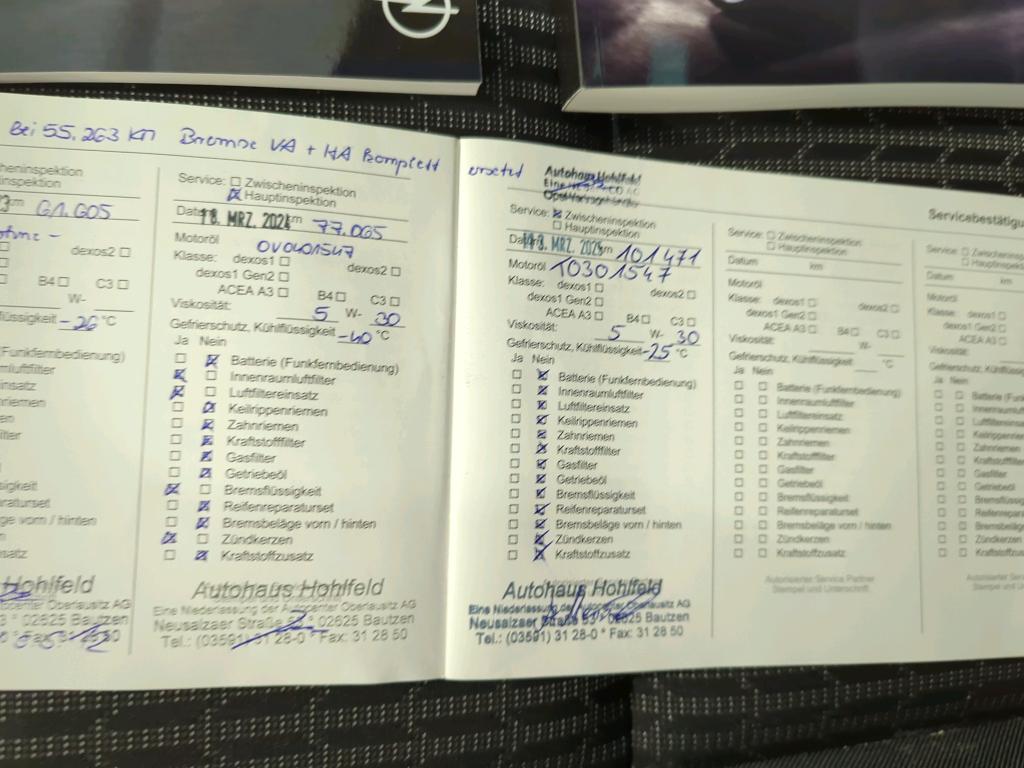 Bei 55.263 km Bremse VA + HA komplett ersetzt
heninspektion
inspektion
km 61.605
dexos2 ☐
B4☐ C3☐
W-
lüssigkeit -26 °C
(Funkfernbedienung)
mluftfilter
insatz
riemen
en
ilter
sigkeit
raturset
ge vorn / hinten
en
satz
Hohlfeld
center Oberlausitz AG
3 * 02625 Bautzen
Service: ☐ Zwischeninspektion
☒ Hauptinspektion
Datum 18. MRZ. 2024 km 77.065
Motoröl OV0401547
Klasse: dexos1 ☐ dexos2 ☐
dexos1 Gen2 ☐
ACEA A3 ☐ B4☐ C3 ☐
Viskosität: 5 W- 30
Gefrierschutz, Kühlflüssigkeit -40 °C
Ja Nein
☐ ☒ Batterie (Funkfernbedienung)
☒ ☐ Innenraumluftfilter
☒ ☐ Luftfiltereinsatz
☐ ☒ Keilrippenriemen
☐ ☒ Zahnriemen
☐ ☒ Kraftstofffilter
☐ ☒ Gasfilter
☐ ☒ Getriebeöl
☒ ☐ Bremsflüssigkeit
☐ ☒ Reifenreparaturset
☐ ☒ Bremsbeläge vorn / hinten
☒ ☐ Zündkerzen
☐ ☒ Kraftstoffzusatz
Autohaus Hohlfeld
Eine Niederlassung der Autocenter Oberlausitz AG
Neusalzaer Straße 53 * 02625 Bautzen
Tel.: (03591) 31 28-0 * Fax: 31 28 50
Autohaus Hohlfeld
Service: ☒ Zwischeninspektion
☐ Hauptinspektion
Datum MRZ. 2025 km 101471
Motoröl T0301547
Klasse: dexos1 ☐ dexos2 ☐
dexos1 Gen2 ☐
ACEA A3 ☐ B4☐ C3☐
Viskosität: 5 W- 30
Gefrierschutz, Kühlflüssigkeit -25 °C
Ja Nein
☐ ☒ Batterie (Funkfernbedienung)
☐ ☒ Innenraumluftfilter
☐ ☒ Luftfiltereinsatz
☐ ☒ Keilrippenriemen
☐ ☒ Zahnriemen
☐ ☒ Kraftstofffilter
☐ ☒ Gasfilter
☐ ☒ Getriebeöl
☐ ☒ Bremsflüssigkeit
☐ ☒ Reifenreparaturset
☐ ☒ Bremsbeläge vorn / hinten
☐ ☒ Zündkerzen
☐ ☒ Kraftstoffzusatz
Autohaus Hohlfeld
Eine Niederlassung der Autocenter Oberlausitz AG
Neusalzaer Straße 53 * 02625 Bautzen
Tel.: (03591) 31 28-0 * Fax: 31 28 50
Servicebestätigu
Service: ☐ Zwischeninspektion
☐ Hauptinspektion
Datum km
Motoröl
Klasse: dexos1 ☐ dexos2 ☐
dexos1 Gen2 ☐
ACEA A3 ☐ B4☐ C3☐
Viskosität: W-
Gefrierschutz, Kühlflüssigkeit °C
Ja Nein
☐ ☐ Batterie (Funkfernbedienung)
☐ ☐ Innenraumluftfilter
☐ ☐ Luftfiltereinsatz
☐ ☐ Keilrippenriemen
☐ ☐ Zahnriemen
☐ ☐ Kraftstofffilter
☐ ☐ Gasfilter
☐ ☐ Getriebeöl
☐ ☐ Bremsflüssigkeit
☐ ☐ Reifenreparaturset
☐ ☐ Bremsbeläge vorn / hinten
☐ ☐ Zündkerzen
☐ ☐ Kraftstoffzusatz
Autorisierter Service Partner
Stempel und Unterschrift
Service: ☐ Zwischeninsp
☐ Hauptinspekt
Datum km
Motoröl
Klasse: dexos1 ☐
dexos1 Gen2 ☐
ACEA A3 ☐
Viskosität:
Gefrierschutz, Kühlflüssig
Ja Nein
☐ ☐ Batterie (Funk
☐ ☐ Innenrauml
☐ ☐ Luftfiltereinsatz
☐ ☐ Keilrippenriem
☐ ☐ Zahnriemen
☐ ☐ Kraftstofffilter
☐ ☐ Gasfilter
☐ ☐ Getriebeöl
☐ ☐ Bremsflüssigkeit
☐ ☐ Reifenreparatur
☐ ☐ Bremsbeläge
☐ ☐ Zündkerzen
☐ ☐ Kraftstoffzusatz
Autorisierter Serv
Stempel und Un